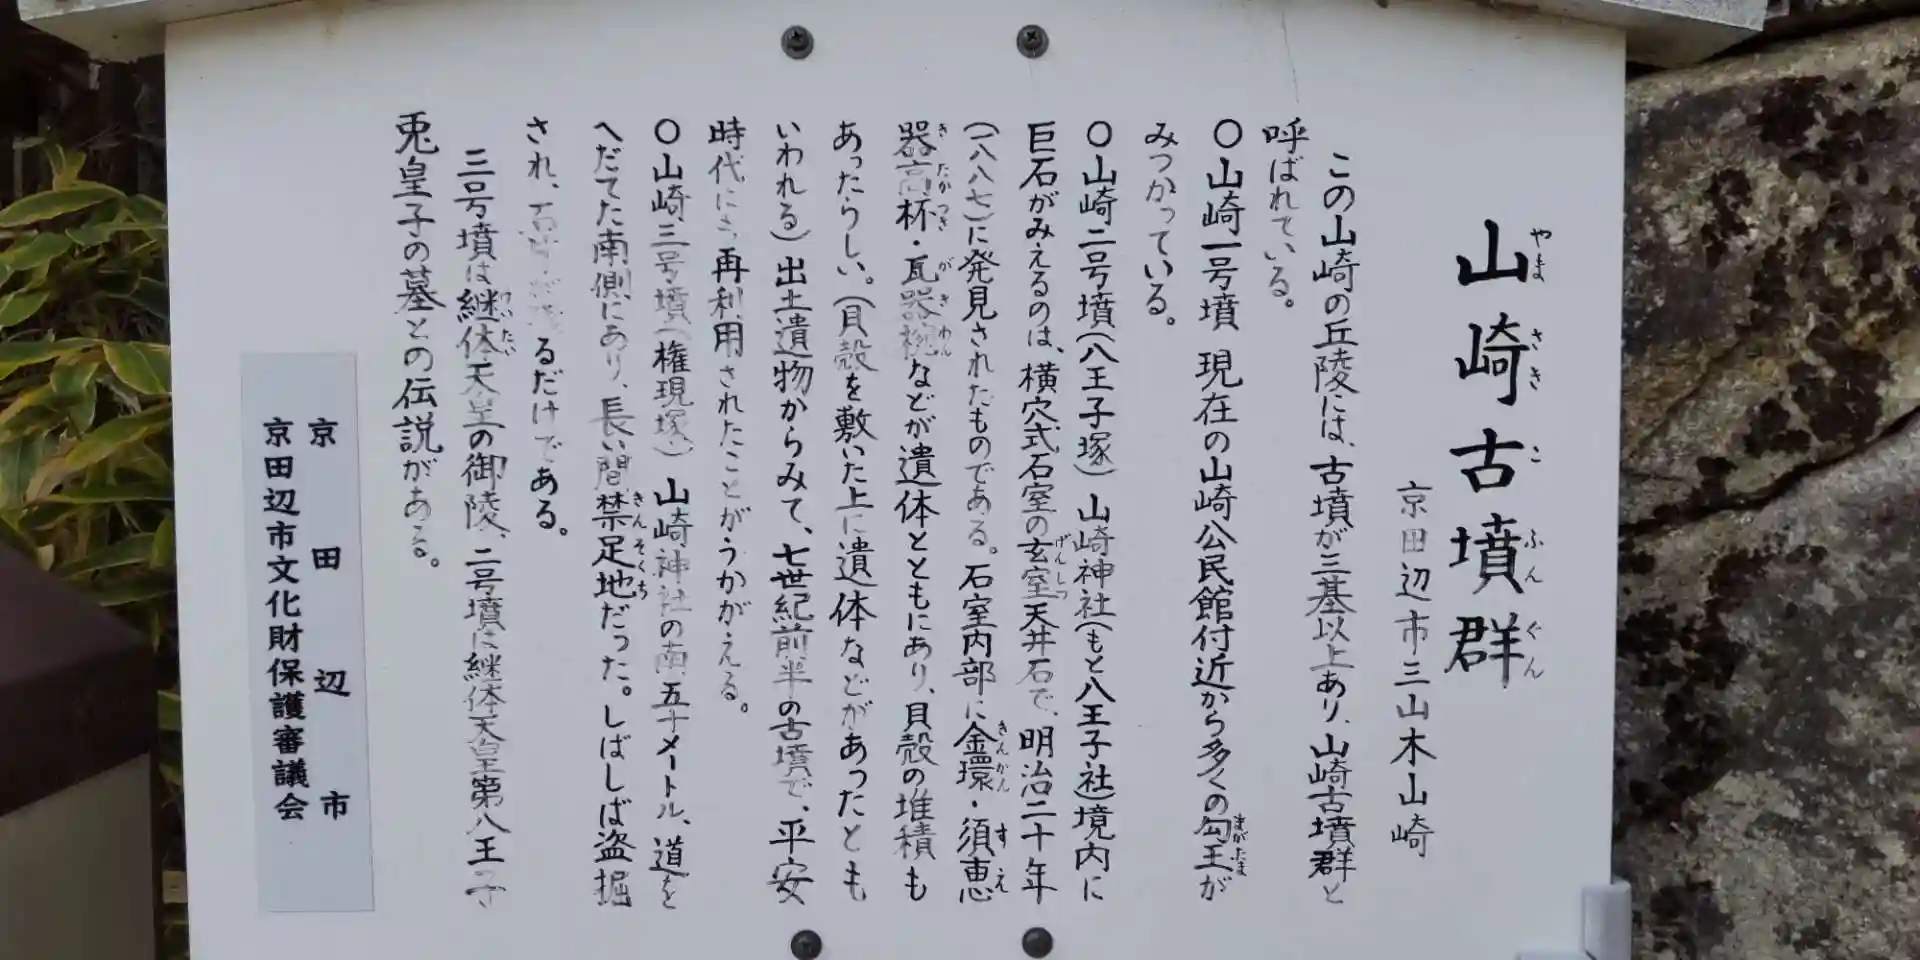 山崎古墳群
京田辺市三山木山崎
この山崎の丘陵には、古墳が三基以上あり、山崎古墳群と
呼ばれている。
○山崎一号墳 現在の山崎公民館付近から多くの勾玉が
みつかっている。
○山崎二号墳(八王子塚) 山崎神社(もと八王子社)境内に
巨石がみえるのは、横穴式石室の玄室天井石で、明治二十年
(一八八七)に発見されたものである。石室内部に金環・須恵
器高杯・瓦器椀などが遺体とともにあり、貝殻の堆積も
あったらしい。(貝殻を敷いた上に遺体などがあったとも
いわれる)出土遺物からみて、七世紀前半の古墳で、平安
時代にも再利用されたことがうかがえる。
○山崎三号墳(権現塚) 山崎神社の南五十メートル、道を
へだてた南側にあり、長い間禁足地だった。しばしば盗掘
され、るだけである。
三号墳は継体天皇の御陵、二号墳は継体天皇第八王子
兎皇子の墓との伝説がある。
京田辺市
京田辺市文化財保護審議会